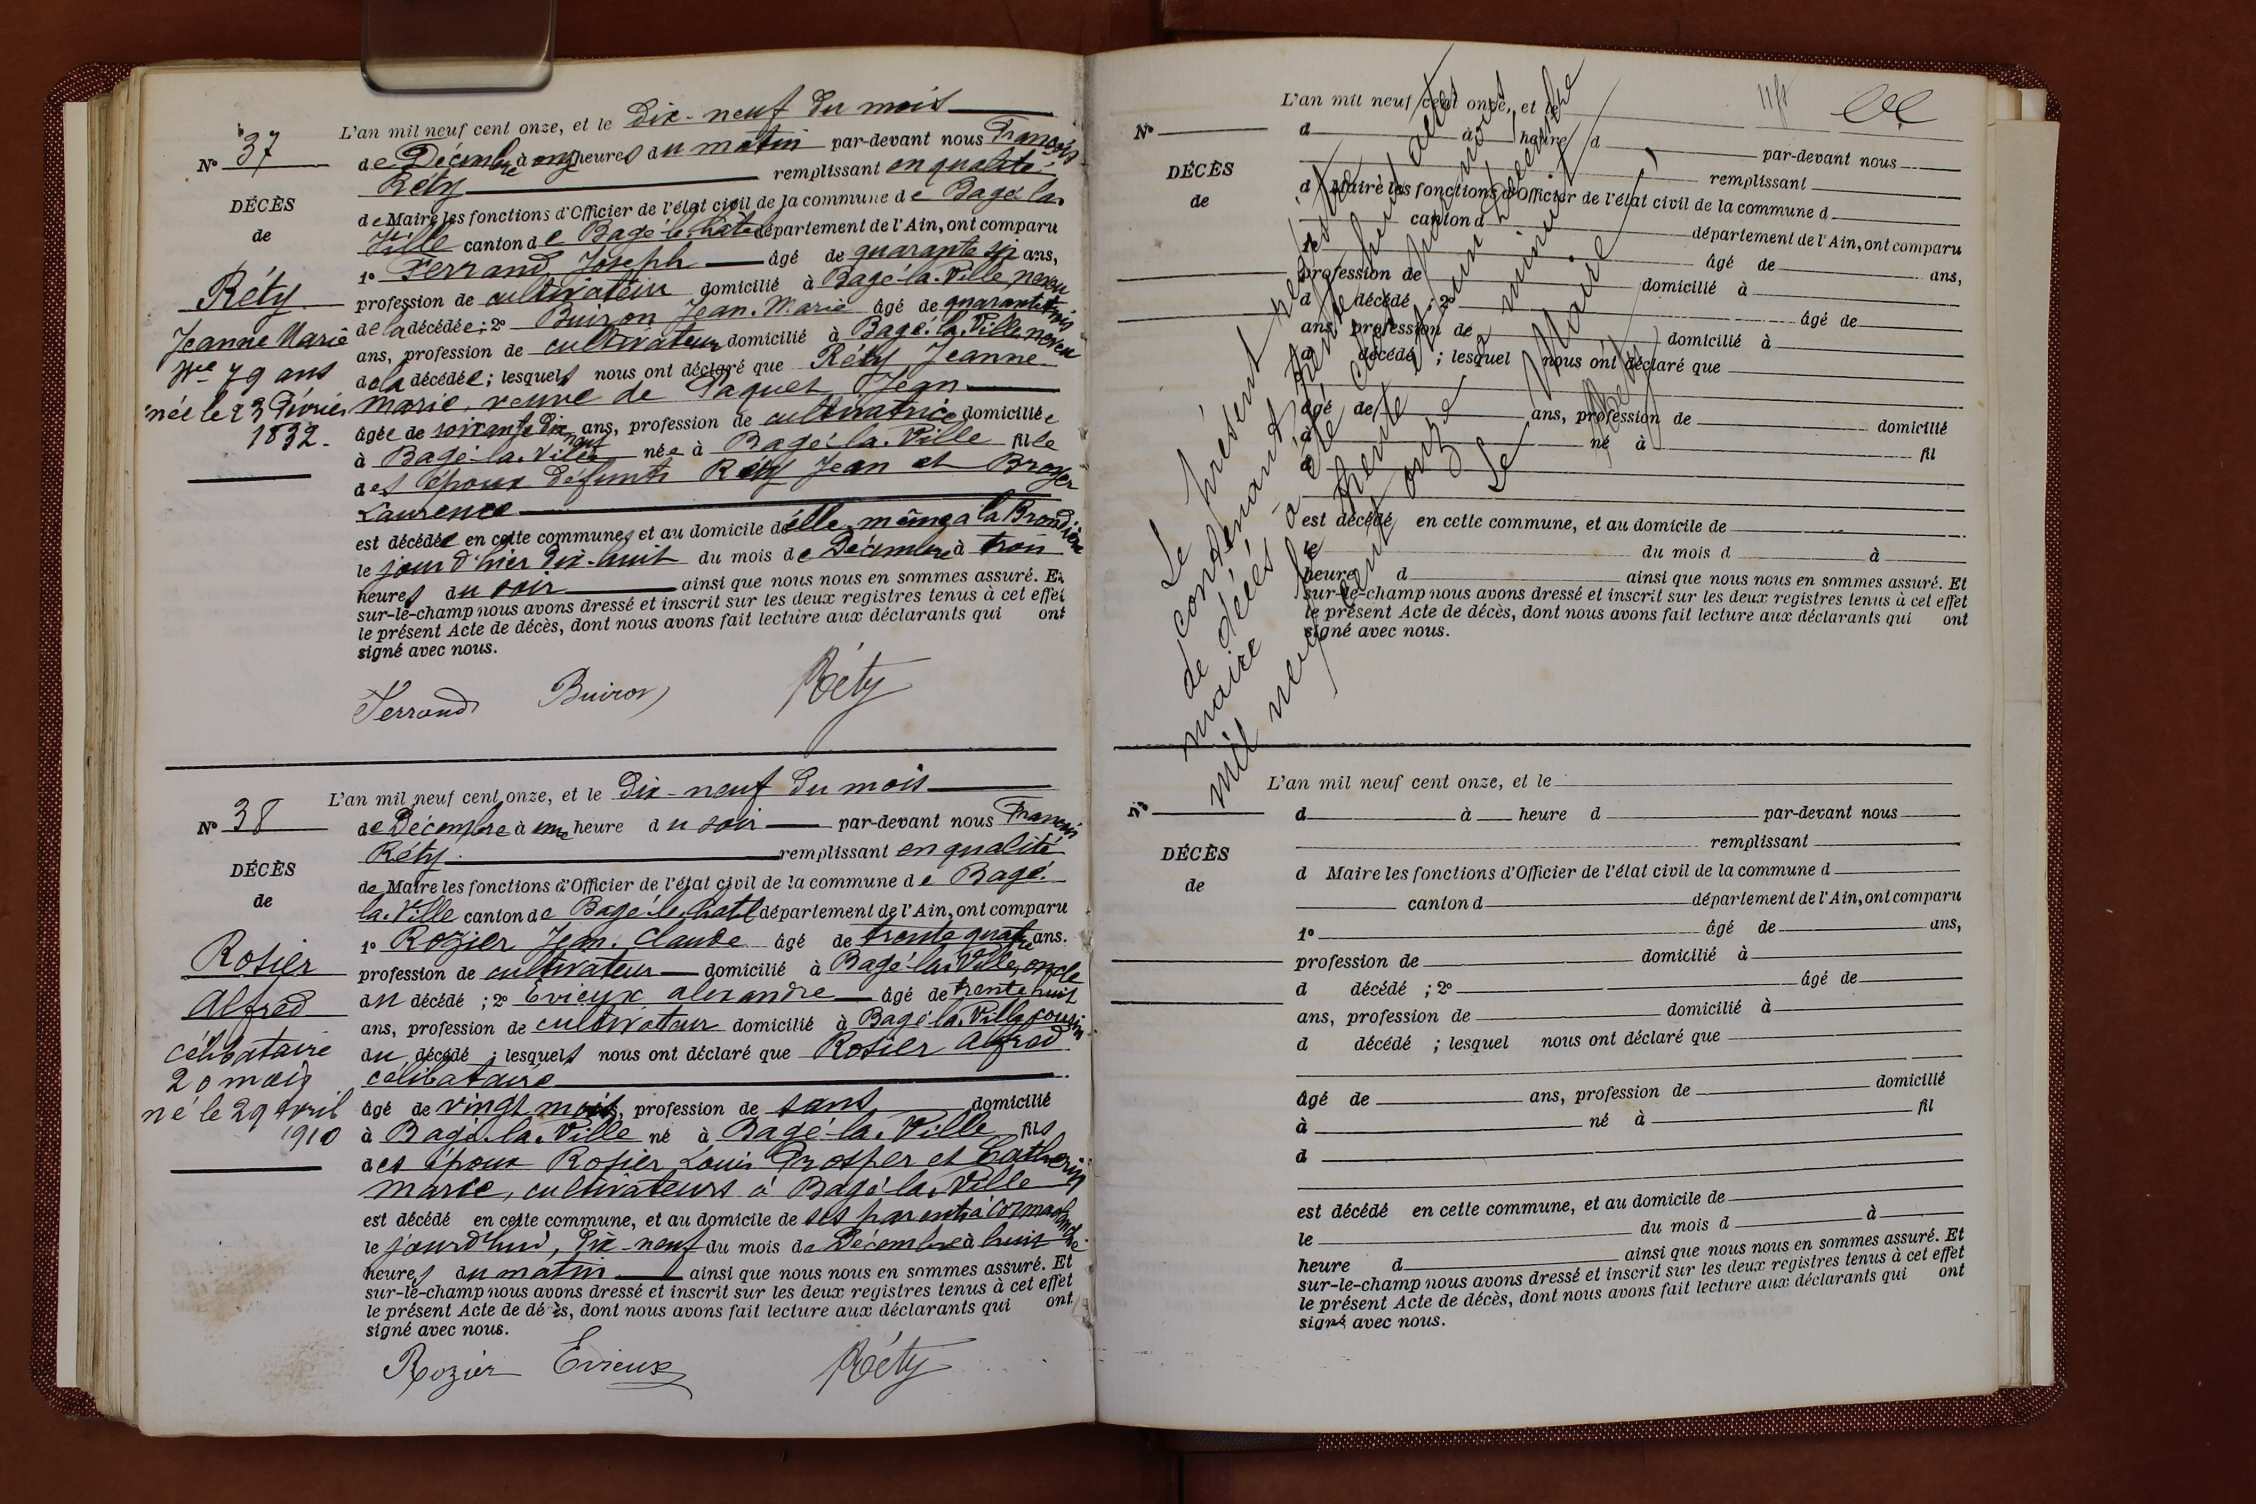 L'an mil neuf cent onze, et le Dix-neuf du mois
N° 37
de Décembre à onze heures du matin par-devant nous François
Réty remplissant en qualité
DÉCÈS
de Maire les fonctions d'Officier de l'état civil de la commune de Bagé la
de
Ville canton de Bagé-le-Châtel département de l'Ain, ont comparu
1° Ferrand Joseph âgé de quarante six ans,
Réty
profession de cultivateur domicilié à Bagé-la-Ville, neveu
Jeanne Marie
de la décédée; 2° Buiron Jean-Marie âgé de quarante trois
Vve 79 ans
ans, profession de cultivateur domicilié à Bagé-la-Ville, neveu
née le 23 Février
de la décédée; lesquels nous ont déclaré que Réty Jeanne
1832.
Marie, veuve de Paquet Jean
âgée de soixante dix neuf ans, profession de cultivatrice domiciliée
à Bagé-la-Ville née à Bagé-la-Ville fille
des époux défunts Réty Jean et Broyer
Laurence
est décédée en cette commune, et au domicile d'elle même, à la Brondière
le jour d'hier dix-huit du mois de Décembre à trois
heures du soir ainsi que nous nous en sommes assuré. Et
sur-le-champ nous avons dressé et inscrit sur les deux registres tenus à cet effet
le présent Acte de décès, dont nous avons fait lecture aux déclarants qui ont
signé avec nous.
Ferrand Buiron Réty
L'an mil neuf cent onze, et le Dix-neuf du mois
N° 38
de Décembre à une heure du soir par-devant nous François
Réty remplissant en qualité
DÉCÈS
de Maire les fonctions d'Officier de l'état civil de la commune de Bagé-
de
la-Ville canton de Bagé-le-Châtel département de l'Ain, ont comparu
1° Rozier Jean-Claude âgé de trente quatre ans.
Rosier
profession de cultivateur domicilié à Bagé-la-Ville, oncle
Alfred
du décédé; 2° Evieux alexandre âgé de trente huit
célibataire
ans, profession de cultivateur domicilié à Bagé-la-Ville, cousin
20 mois
du décédé; lesquels nous ont déclaré que Rosier Alfred
né le 29 Avril
célibataire
1910
âgé de vingt mois, profession de sans domicilié
à Bagé-la-Ville né à Bagé-la-Ville fils
des époux Rosier Louis Prosper et Catherin
Marie, cultivateurs à Bagé-la-Ville
est décédé en cette commune, et au domicile de ses parents à Cormaranche
le jourd'hui, dix-neuf du mois de Décembre à huit
heures du matin ainsi que nous nous en sommes assuré. Et
sur-le-champ nous avons dressé et inscrit sur les deux registres tenus à cet effet
le présent Acte de décès, dont nous avons fait lecture aux déclarants qui ont
signé avec nous.
Rozier Evieux Réty
L'an mil neuf cent onze, et le
N°
d à heure d par-devant nous
remplissant
DÉCÈS
d Maire les fonctions d'Officier de l'état civil de la commune d
de
canton d département de l'Ain, ont comparu
1° âgé de ans,
profession de domicilié à
d décédé ; 2° âgé de
ans, profession de domicilié à
d décédé ; lesquel nous ont déclaré que
âgé de ans, profession de domicilié
à né à fil
d
est décédé en cette commune, et au domicile de
le du mois d à
heure d ainsi que nous nous en sommes assuré. Et
sur-le-champ nous avons dressé et inscrit sur les deux registres tenus à cet effet
le présent Acte de décès, dont nous avons fait lecture aux déclarants qui ont
signé avec nous.
Le présent registre
contenant trente huit actes
de décès à été clos par nous
maire le trente et un décembre
mil neuf cent onze à minuit
Le Maire,
Réty
L'an mil neuf cent onze, et le
N°
d à heure d par-devant nous
remplissant
DÉCÈS
d Maire les fonctions d'Officier de l'état civil de la commune d
de
canton d département de l'Ain, ont comparu
1° âgé de ans,
profession de domicilié à
d décédé ; 2° âgé de
ans, profession de domicilié à
d décédé ; lesquel nous ont déclaré que
âgé de ans, profession de domicilié
à né à fil
d
est décédé en cette commune, et au domicile de
le du mois d à
heure d ainsi que nous nous en sommes assuré. Et
sur-le-champ nous avons dressé et inscrit sur les deux registres tenus à cet effet
le présent Acte de décès, dont nous avons fait lecture aux déclarants qui ont
signé avec nous.